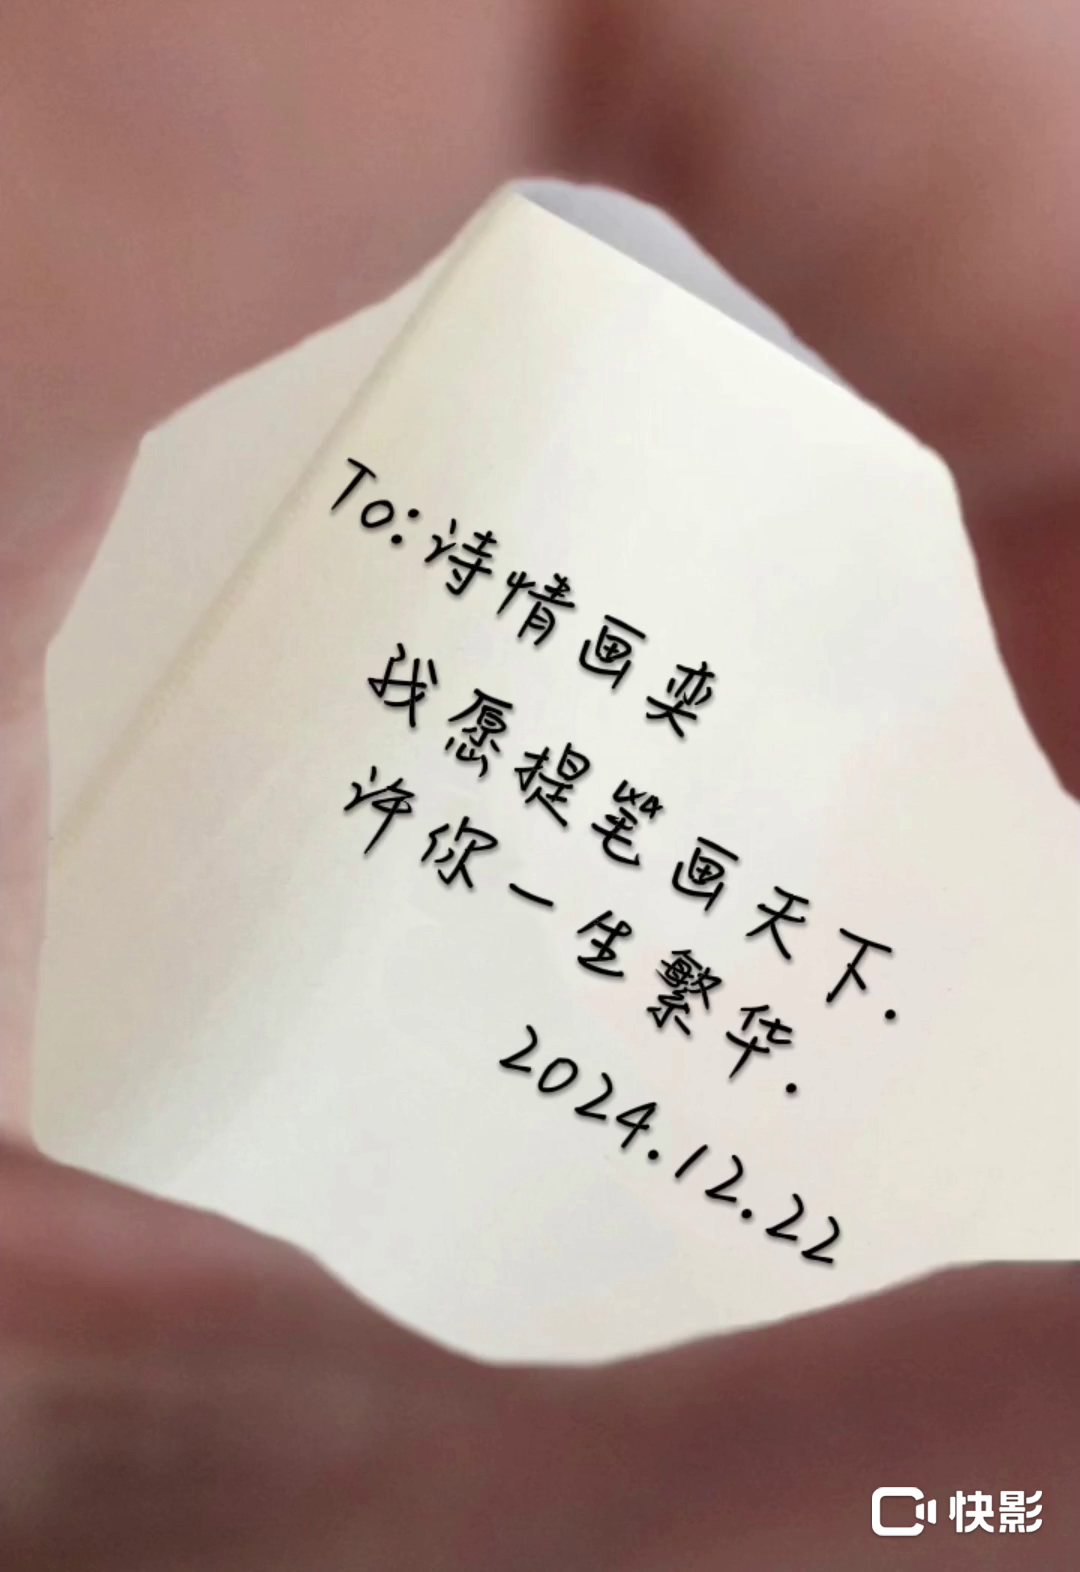 To:诗情画奕
我愿提笔画天下.
许你一生繁华.
2024.12.22
快影